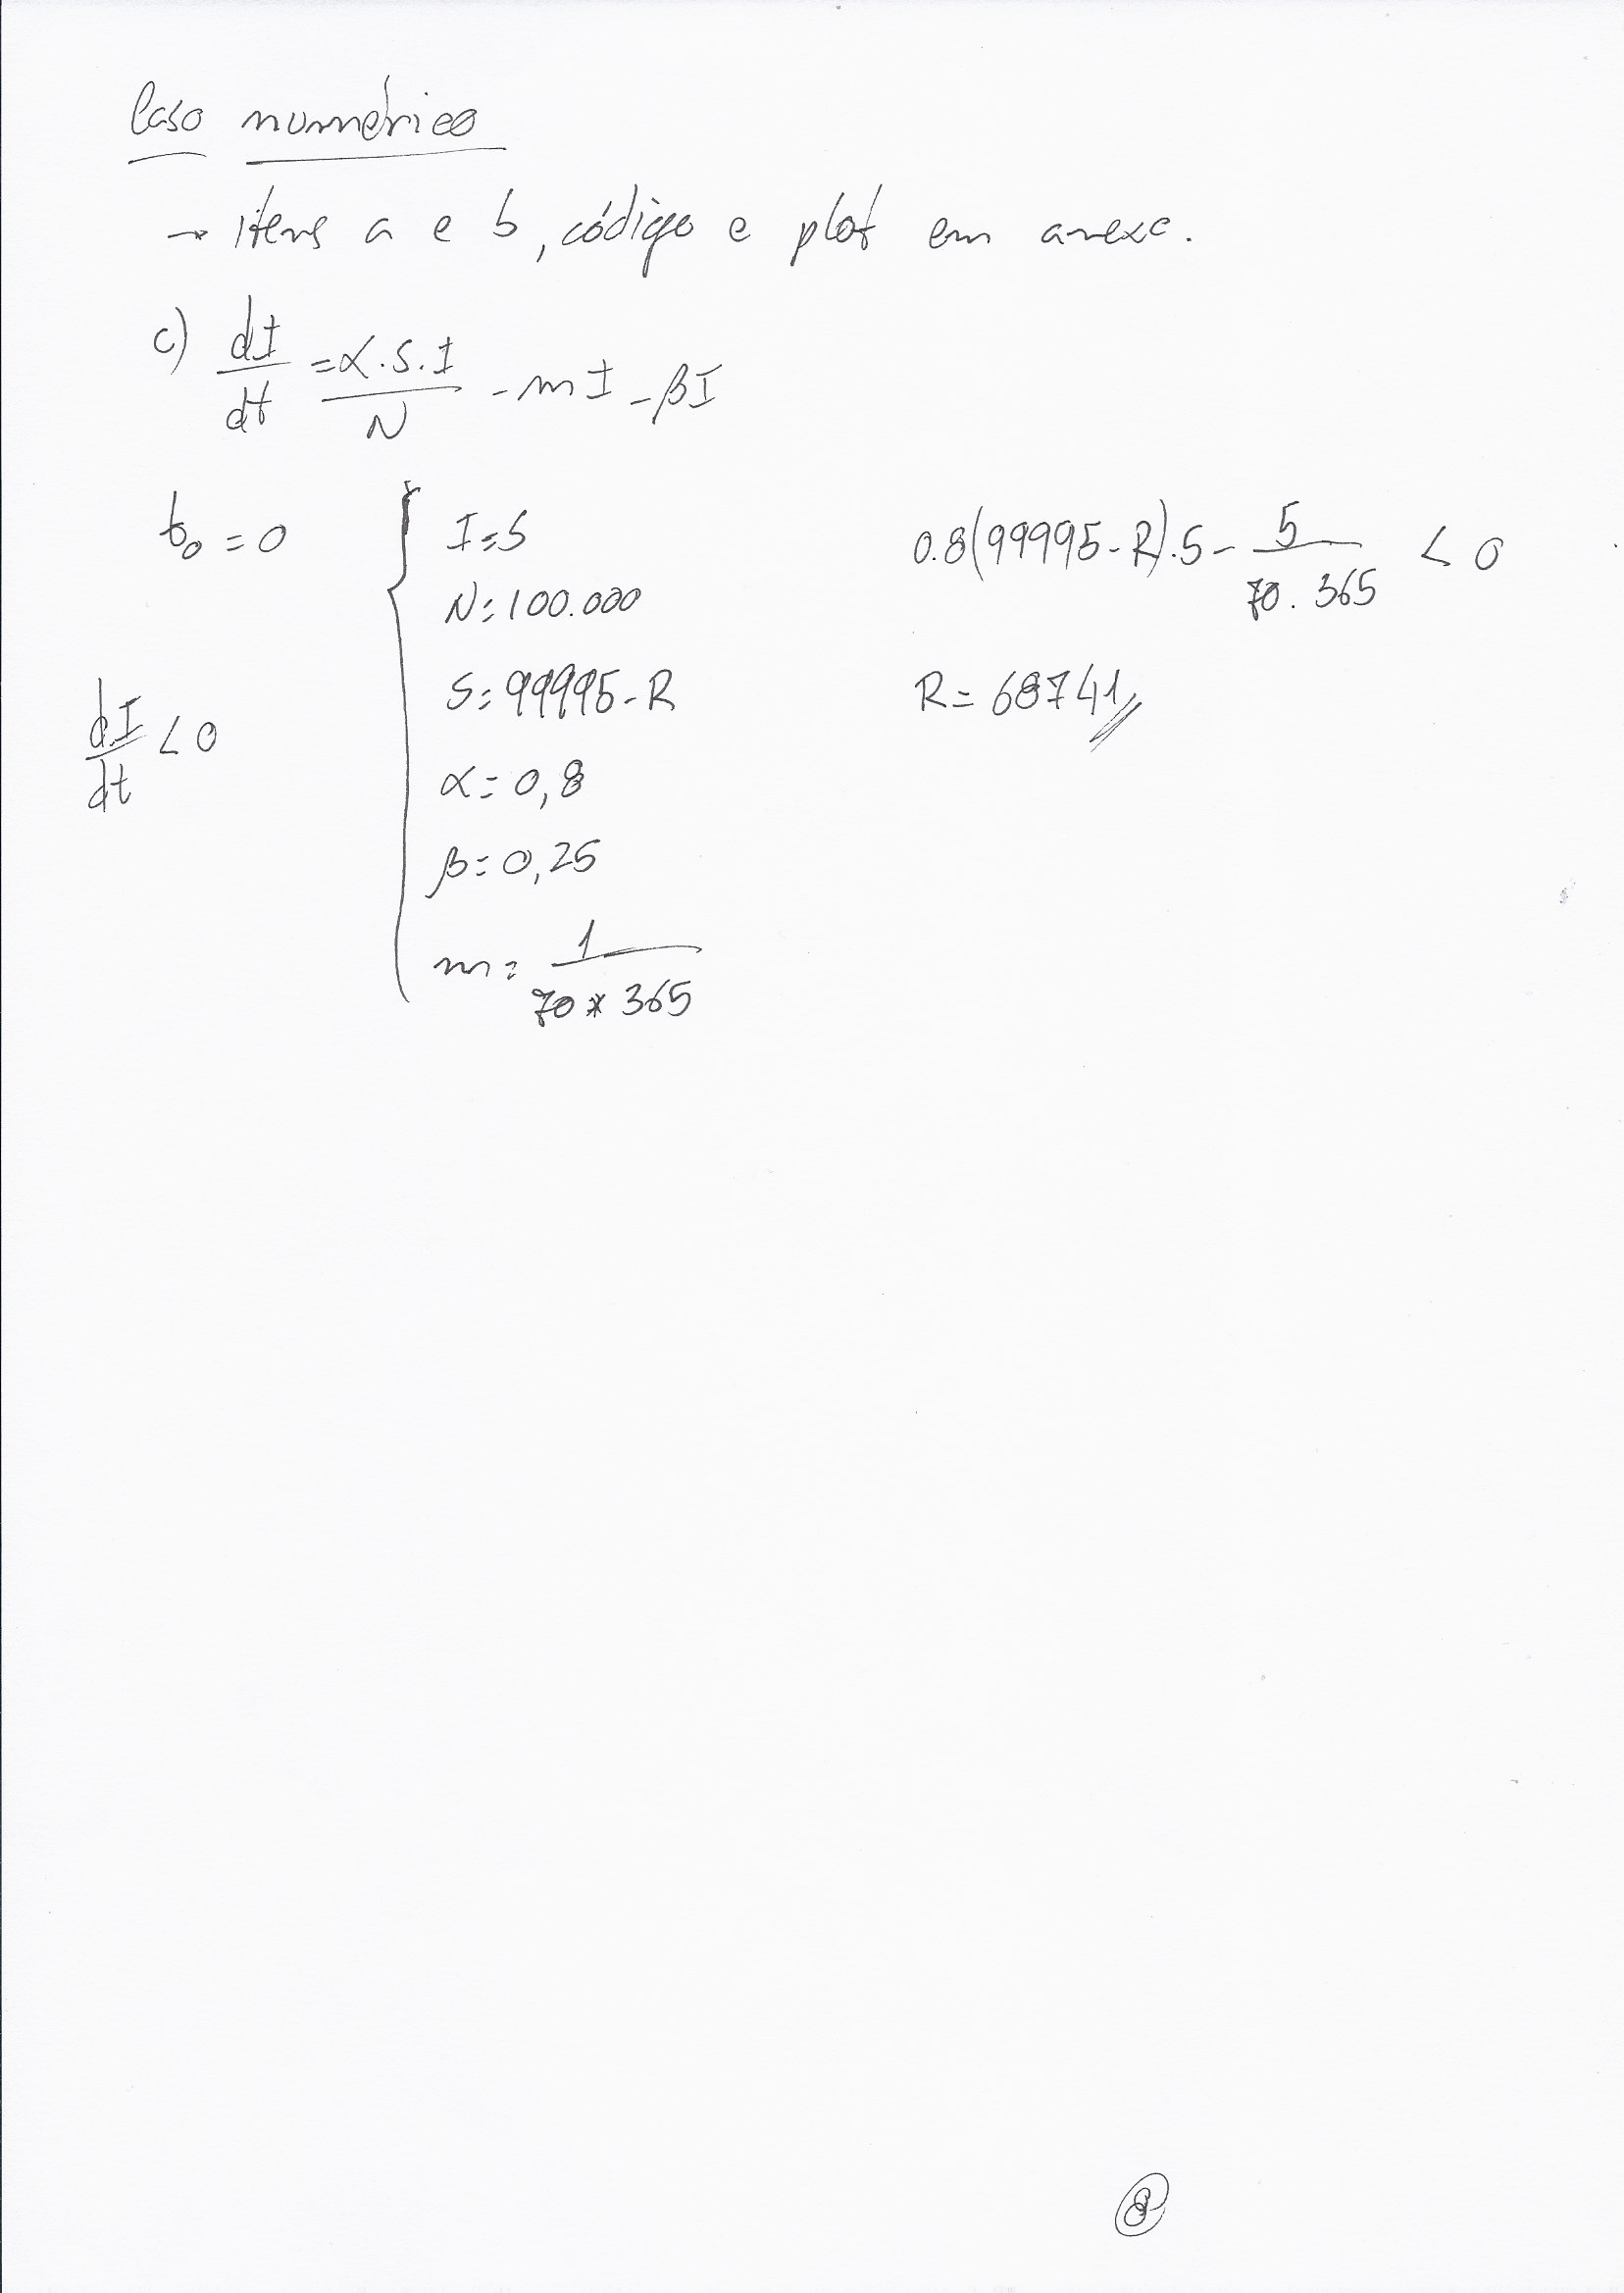 Caso numérico
→ itens a e b, código e plot em anexo.
c) dI/dt = α.S.I/N - mI - βI
t₀ = 0
dI/dt < 0
I = 5
N = 100.000
S = 99995 - R
α = 0,8
β = 0,25
m = 1/70*365
0.8(99995-R).5 - 5/70.365 < 0
R = 68741
8